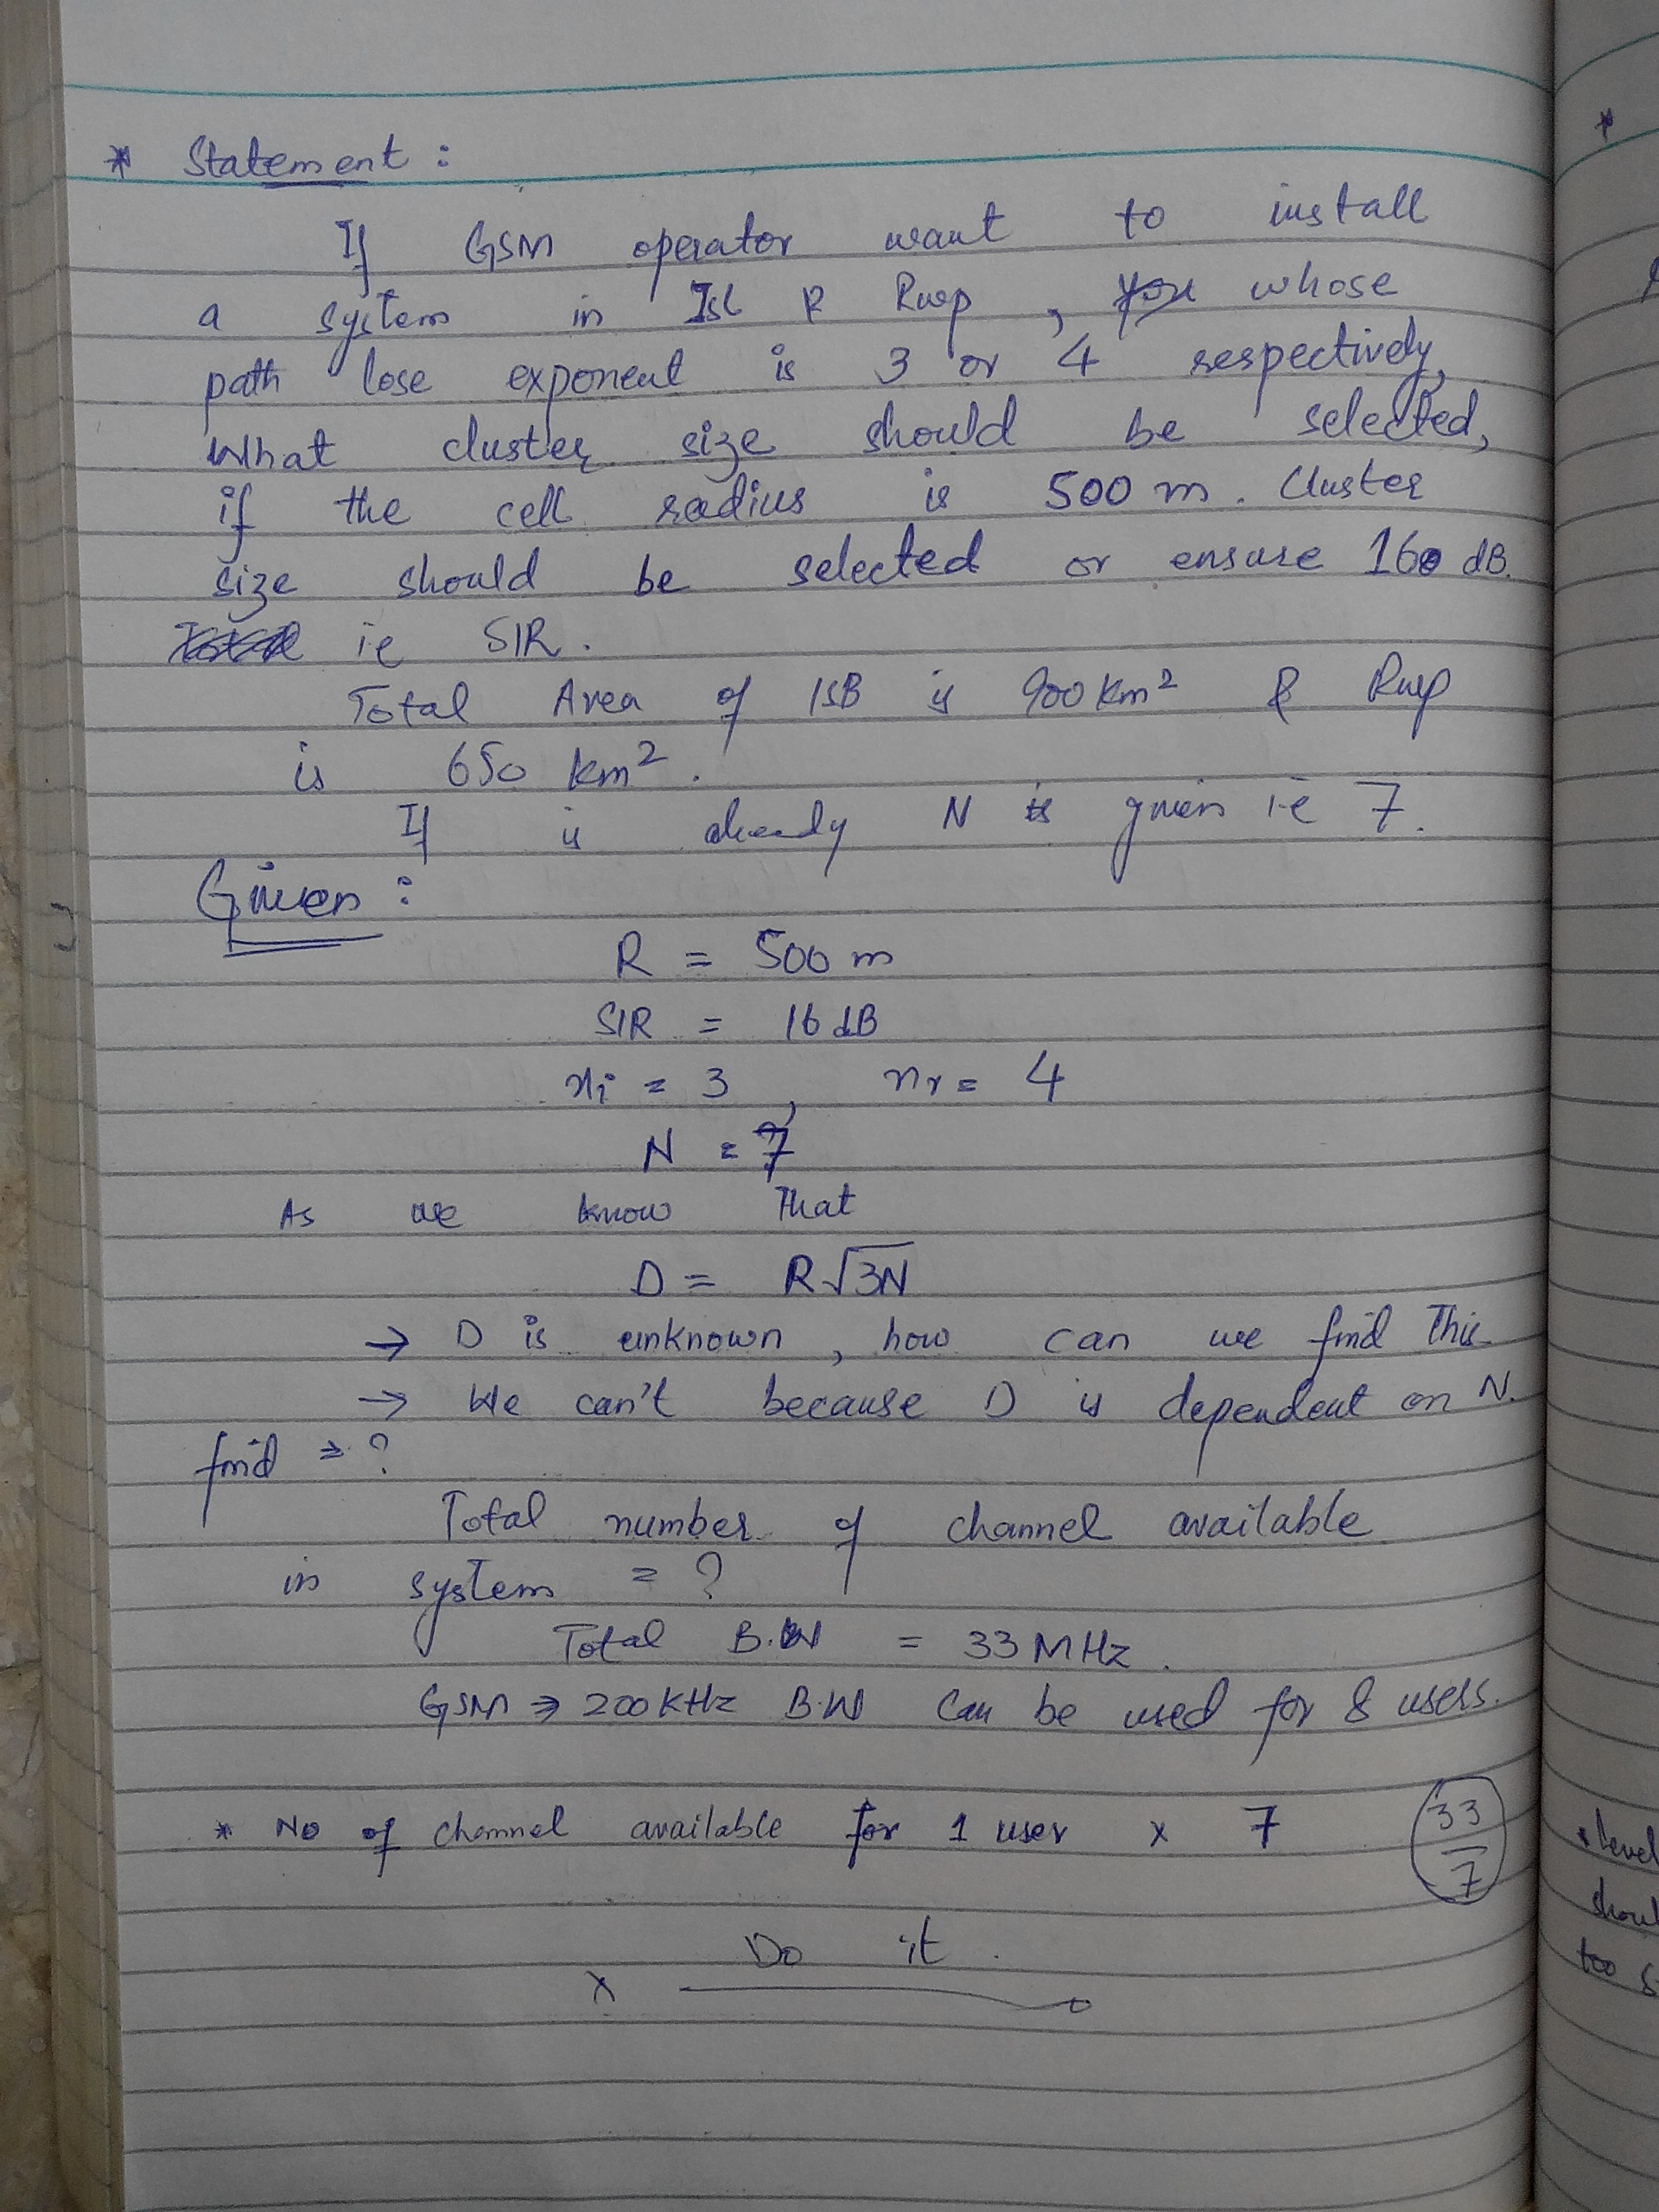 * Statement :
If GSM operator want to install
a system in Isl & Rwp , whose
path lose exponent is 3 or 4 respectively,
What cluster size should be selected,
if the cell radius is 500 m. Cluster
size should be selected or ensure 160 dB.
ie SIR.
Total Area of ISB is 900 Km² & Rwp
is 650 km².
If is already N is given i.e 7.
Given :
R = 500 m
SIR = 16 dB
ni = 3 , nr = 4
N = 7
As we know That
D = R√3N
→ D is unknown, how can we find This
→ We can't because D is dependent on N.
find => ?
Total number of channel available
in system = ?
Total B.W = 33 MHz.
GSM => 200 KHz B.W Can be used for 8 users.
* No of channel available for 1 user x 7
33
7
Do it.
level
shoul
too s